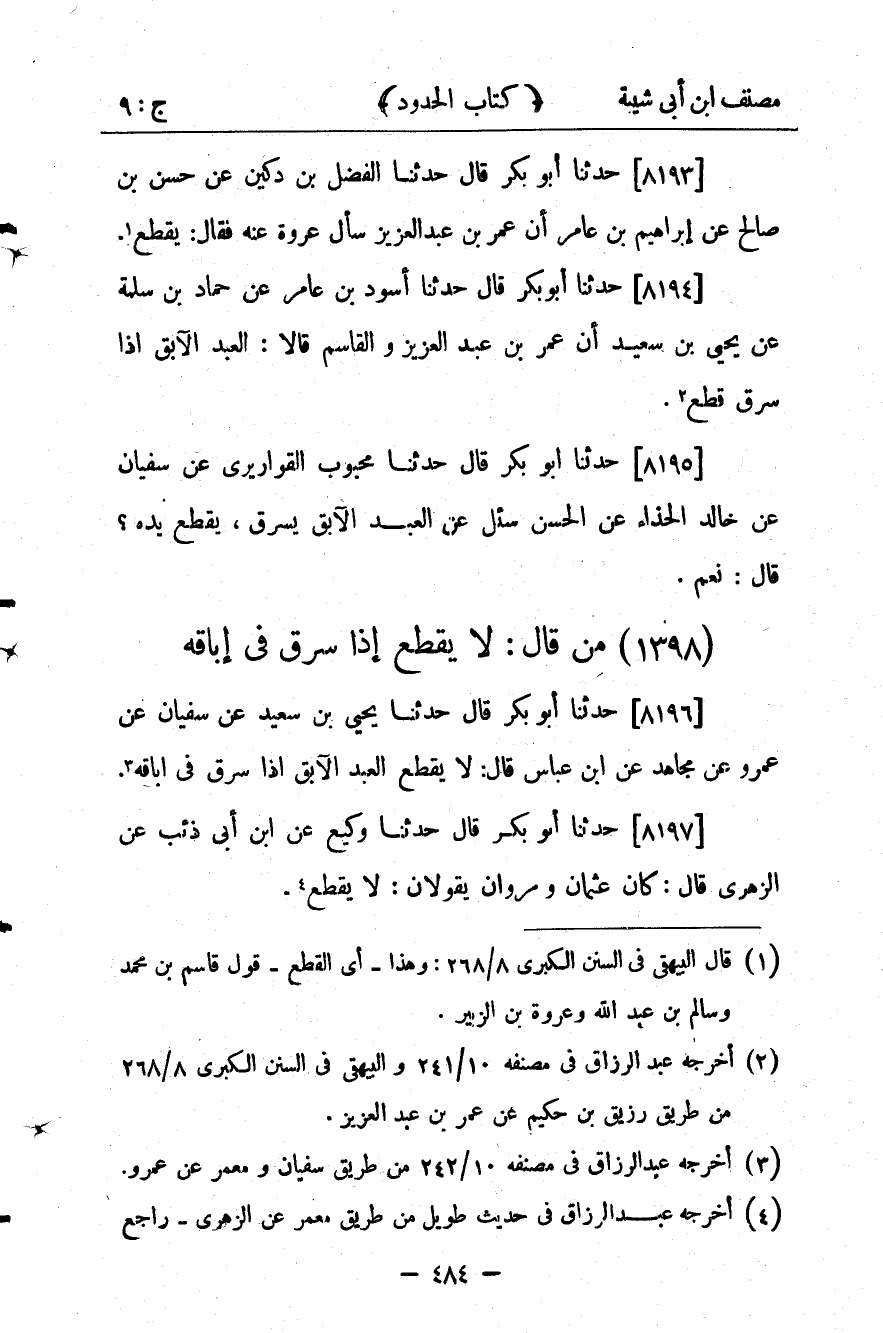 مصنف ابن أبى شيبة ﴿ كتاب الحدود ﴾ ج : ٩
[٨١٩٣] حدثنا أبو بكر قال حدثنا الفضل بن دكين عن حسن بن
صالح عن إبراهيم بن عامر أن عمر بن عبدالعزيز سأل عروة عنه فقال: يقطع١.
[٨١٩٤] حدثنا أبوبكر قال حدثنا أسود بن عامر عن حماد بن سلمة
عن يحيي بن سعيد أن عمر بن عبد العزيز و القاسم قالا : العبد الآبق اذا
سرق قطع٢ .
[٨١٩٥] حدثنا ابو بكر قال حدثنا محبوب القواريرى عن سفيان
عن خالد الحذاء عن الحسن سئل عن العبد الآبق يسرق ، يقطع يده ؟
قال : نعم .
(١٣٩٨) من قال : لا يقطع إذا سرق فى إباقه
[٨١٩٦] حدثنا أبو بكر قال حدثنا يحيي بن سعيد عن سفيان عن
عمرو عن مجاهد عن ابن عباس قال: لا يقطع العبد الآبق اذا سرق فى اباقه٣.
[٨١٩٧] حدثنا أبو بكر قال حدثنا وكيع عن ابن أبى ذئب عن
الزهرى قال : كان عثمان و مروان يقولان : لا يقطع٤ .
(١) قال البيهقى فى السنن الكبرى ٢٦٨/٨ : وهذا - أى القطع - قول قاسم بن محمد
وسالم بن عبد الله وعروة بن الزبير .
(٢) أخرجه عبد الرزاق فى مصنفه ٢٤١/١٠ و البيهقى فى السنن الكبرى ٢٦٨/٨
من طريق رزيق بن حكيم عن عمر بن عبد العزيز .
(٣) أخرجه عبدالرزاق فى مصنفه ٢٤٢/١٠ من طريق سفيان و معمر عن عمرو.
(٤) أخرجه عبدالرزاق فى حديث طويل من طريق معمر عن الزهرى - راجع
– ٤٨٤ –